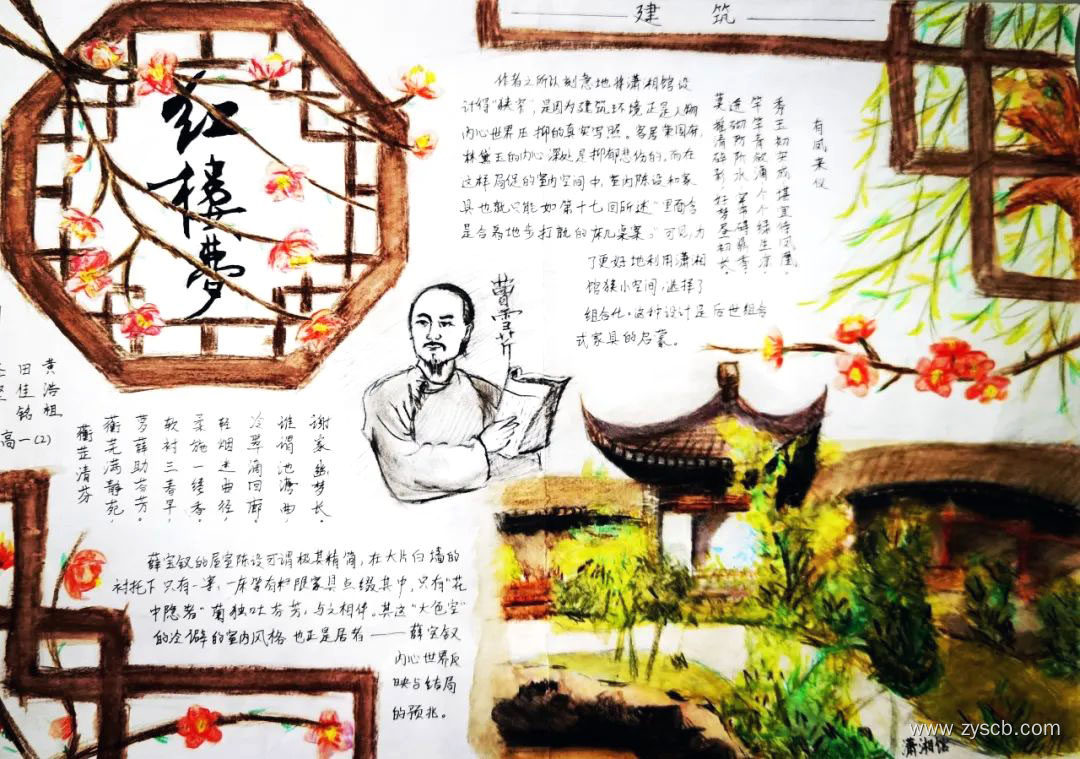 建 筑
红楼梦
作者之所以刻意地将潇湘馆设
计得“狭窄”,是因为建筑环境正是人物
内心世界压抑的真实写照。客居荣国府,
林黛玉的内心深处是抑郁悲伤的,而在
这样局促的室内空间中,室内陈设和家
具也就只能如第十七回所述“里面合
是合着地步打就的床几桌案。”可见,为
了更好地利用潇湘
馆狭小空间,选择了
组合化。这种设计是后世组合
式家具的启蒙。
有凤来仪
秀玉初成实,堪宜待凤凰。
竿竿青欲滴,个个绿生凉。
迸砌防阶水,穿帘碍鼎香。
莫摇清碎影,好梦昼初长。
曹雪芹
黄浩祖
田佳铭
高一(2)
蘅芷清芬
蘅芜满静苑,
萝薜助芬芳。
软衬三春草,
柔施一缕香。
轻烟迷曲径,
冷翠滴回廊。
谁谓池塘曲,
谢家幽梦长。
薛宝钗的居室陈设可谓极其精简,在大片白墙的
衬托下只有一案、一床等有限家具点缀其中,只有“花
中隐者”菊独吐芬芳,与之相伴。其这“大色空”
的冷僻的室内风格也正是居者——薛宝钗
内心世界反
映与结局
的预兆。
潇湘馆
www.zyscb.com